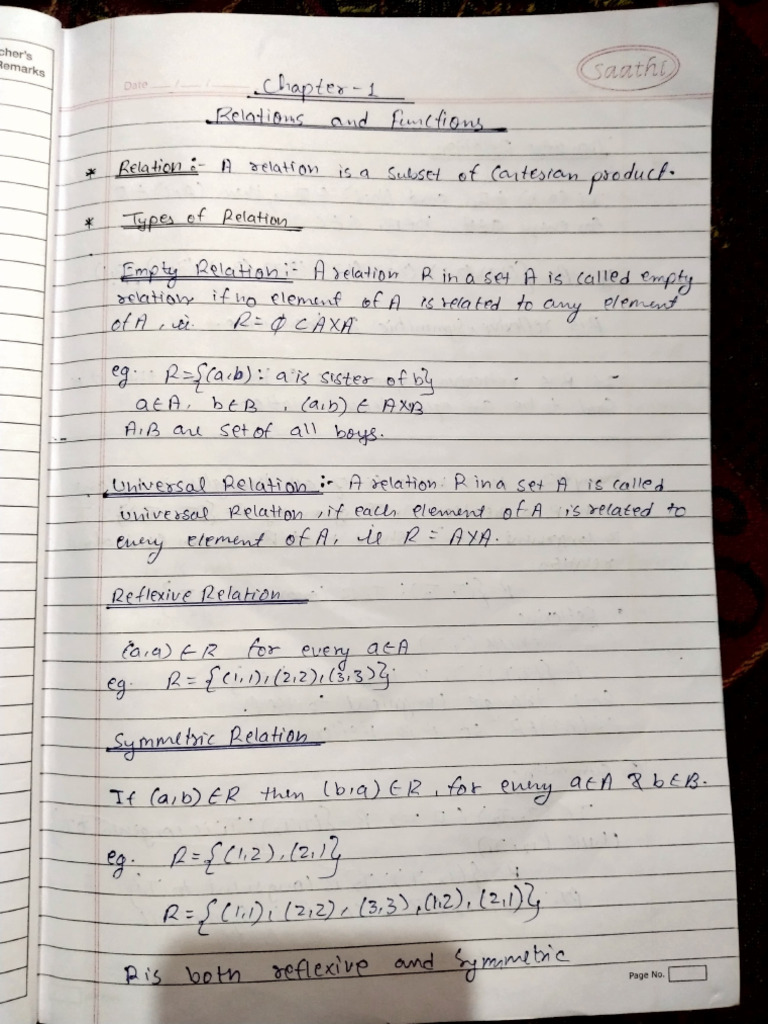 cher's
Remarks
Saathi
Date __/__/__
Chapter-1
Relations and Functions
* Relation :- A relation is a subset of Cartesian product.
* Types of Relation
Empty Relation :- A relation R in a set A is called empty
relation if no element of A is related to any element
of A, ie. R = ϕ ⊂ A×A
eg. R={(a,b): a is sister of b}
a∈A, b∈B, (a,b) ∈ A×B
A,B are set of all boys.
Universal Relation :- A relation R in a set A is called
universal Relation, if each element of A is related to
every element of A, ie R = A×A.
Reflexive Relation
(a,a) ∈ R for every a∈A
eg. R = {(1,1),(2,2),(3,3)}
Symmetric Relation
If (a,b) ∈ R then (b,a) ∈ R, for every a∈A & b∈B.
eg. R={(1,2),(2,1}
R={(1,1), (2,2), (3,3), (1,2), (2,1)}
R is both reflexive and symmetric
Page No.